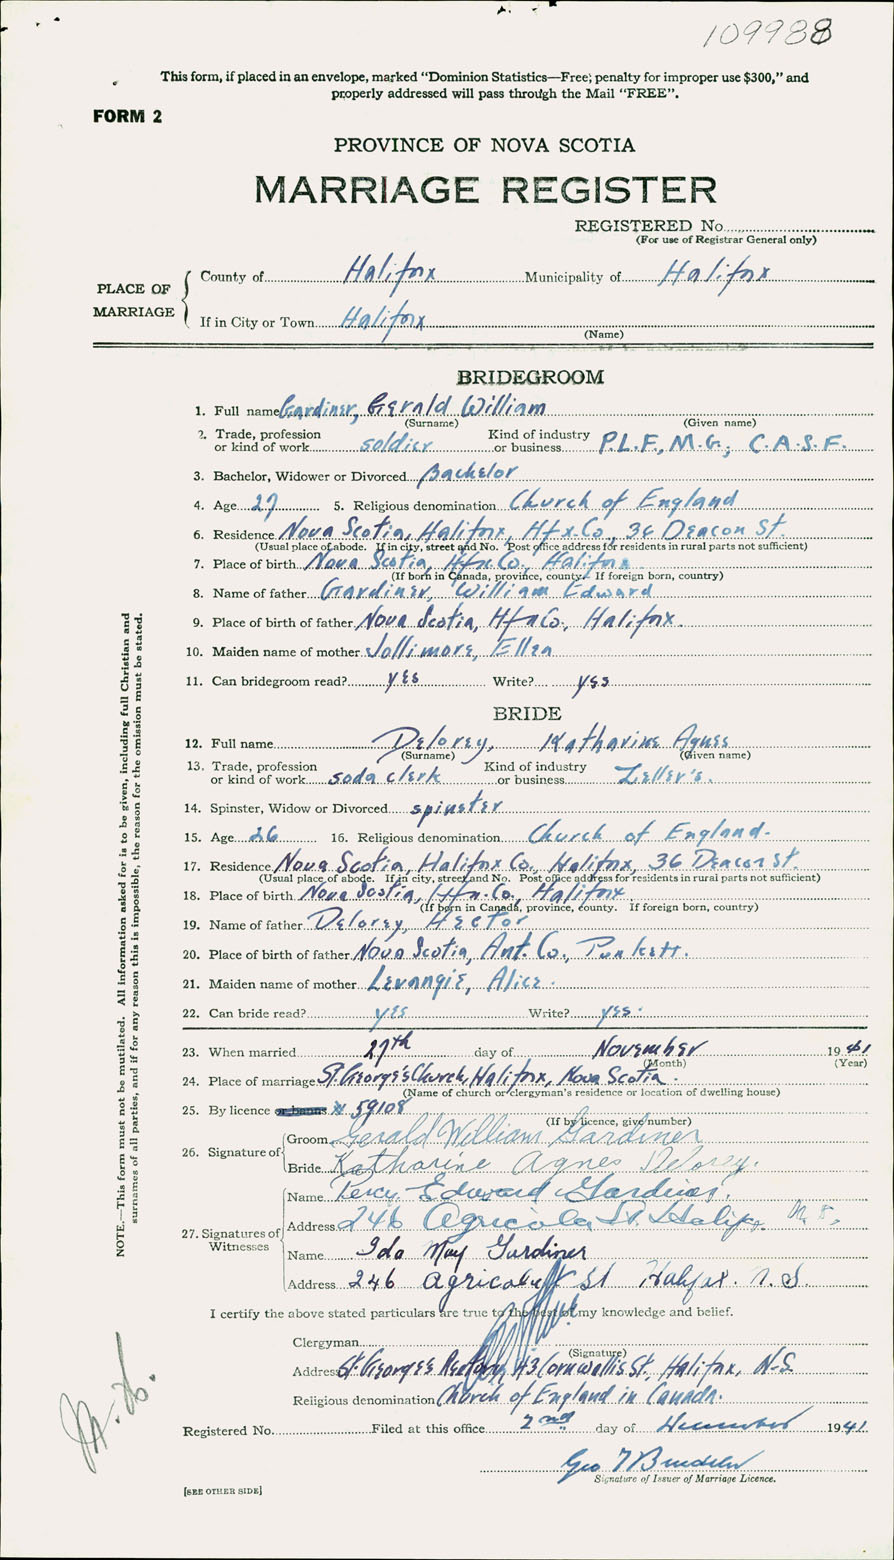 109988
This form, if placed in an envelope, marked "Dominion Statistics—Free; penalty for improper use $300," and
properly addressed will pass through the Mail "FREE".
FORM 2
PROVINCE OF NOVA SCOTIA
MARRIAGE REGISTER
REGISTERED No.
(For use of Registrar General only)
PLACE OF MARRIAGE
County of Halifax Municipality of Halifax
If in City or Town Halifax
(Name)
BRIDEGROOM
1. Full name Gardiner, Gerald William
(Surname) (Given name)
2. Trade, profession or kind of work soldier Kind of industry or business P.L.F., M.G., C.A.S.F.
3. Bachelor, Widower or Divorced Bachelor
4. Age 27 5. Religious denomination Church of England
6. Residence Nova Scotia, Halifax, Hfx. Co, 36 Deacon St.
(Usual place of abode. If in city, street and No. Post office address for residents in rural parts not sufficient)
7. Place of birth Nova Scotia, Hfx Co., Halifax
(If born in Canada, province, county. If foreign born, country)
8. Name of father Gardiner, William Edward
9. Place of birth of father Nova Scotia, Hfx Co., Halifax.
10. Maiden name of mother Jollimore, Ella
11. Can bridegroom read? yes Write? yes
BRIDE
12. Full name Delorey, Katharine Agnes
(Surname) (Given name)
13. Trade, profession or kind of work soda clerk Kind of industry or business Zeller's.
14. Spinster, Widow or Divorced spinster
15. Age 26 16. Religious denomination Church of England.
17. Residence Nova Scotia, Halifax Co, Halifax, 36 Deacon St.
(Usual place of abode. If in city, street and No. Post office address for residents in rural parts not sufficient)
18. Place of birth Nova Scotia, Hfx. Co., Halifax
(If born in Canada, province, county. If foreign born, country)
19. Name of father Delorey, Hector
20. Place of birth of father Nova Scotia, Ant. Co.,
21. Maiden name of mother Levangie, Alice.
22. Can bride read? yes Write? yes.
23. When married 27th day of November 1941
(Month) (Year)
24. Place of marriage St. George's Church, Halifax, Nova Scotia.
(Name of church or clergyman's residence or location of dwelling house)
25. By licence or banns # 59108
(If by licence, give number)
26. Signature of
Groom Gerald William Gardiner
Bride Katharine Agnes Delorey.
27. Signatures of Witnesses
Name Percy Edward Gardiner.
Address 246 Agricola St. Halifx. N.S.
Name Ida May Gardiner
Address 246 Agricola St Halifax. N.S.
I certify the above stated particulars are true to the best of my knowledge and belief.
Clergyman
(Signature)
Address St. George's Rectory, 43 Cornwallis St., Halifax, N.S.
Religious denomination Church of England in Canada.
Registered No. Filed at this office 2nd day of 1941
Geo
Signature of Issuer of Marriage Licence.
[SEE OTHER SIDE]
NOTE.—This form must not be mutilated. All information asked for is to be given, including full Christian and
surnames of all parties, and if for any reason this is impossible, the reason for the omission must be stated.